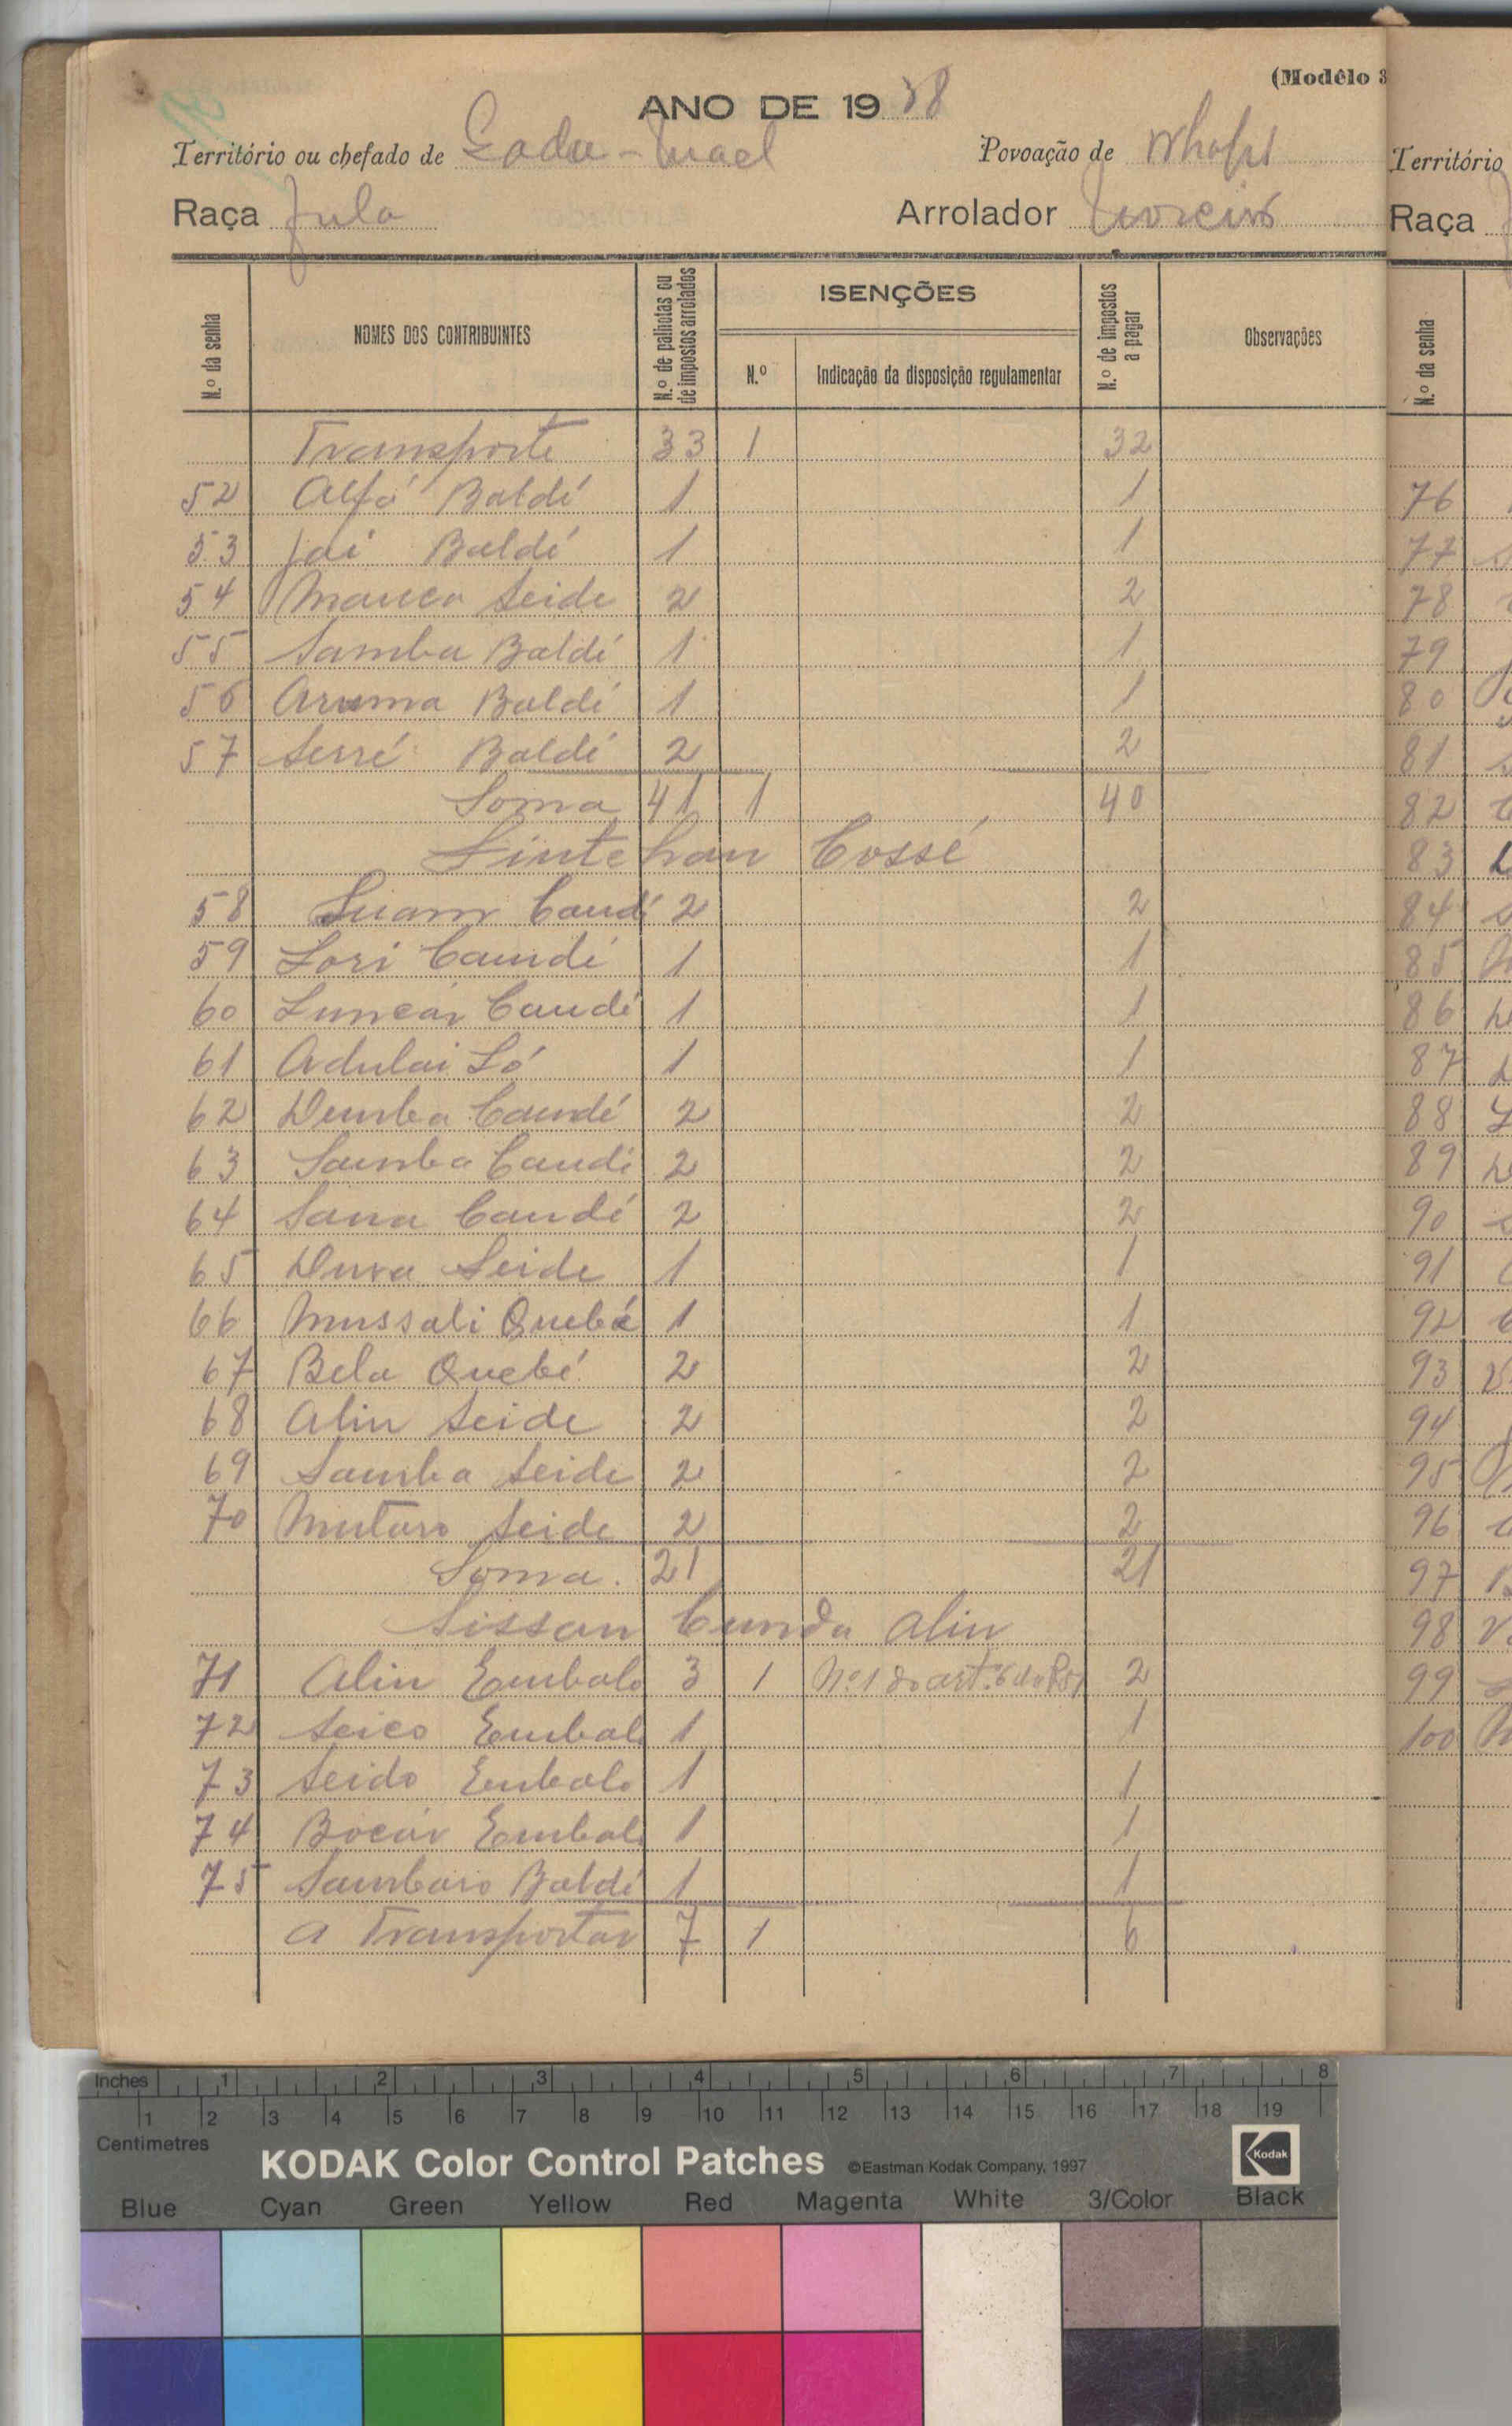 (Modêlo 3
ANO DE 1938
Território ou chefado de Gadu-Mael Povoação de
Raça Fula Arrolador
N.º da senha NOMES DOS CONTRIBUINTES N.º de palhotas ou de impostos arrolados ISENÇÕES N.º Indicação da disposição regulamentar N.º de impostos a pagar Observações
Transporte 33 1 32
52 Alfá Baldé 1 1
53 Jai Baldé 1 1
54 Mauca Seide 2 2
55 Samba Baldé 1 1
56 Aruma Baldé 1 1
57 Serré Baldé 2 2
Soma 41 1 40
Sintchan Cossé
58 Suam Candé 2 2
59 Lori Candé 1 1
60 Luncar Candé 1 1
61 Adulai Ló 1 1
62 Demba Candé 2 2
63 Samba Candé 2 2
64 Sana Candé 2 2
65 Dura Seide 1 1
66 Mussali Quebé 1 1
67 Bela Quebé 2 2
68 Alin Seide 2 2
69 Samba Seide 2 2
70 Mutaro Seide 2 2
Soma. 21 21
Sissan Cunda Alin
71 Alin Embalo 3 1 Nº 1 do artº 6 do 2
72 Seico Embalo 1 1
73 Seido Embalo 1 1
74 Bocár Embalo 1 1
75 Sambaro Baldé 1 1
A Transportar 7 1 6
Território
Raça
N.º da senha
76
77
78
79
80
81
82
83
84
85
86
87
88
89
90
91
92
93
94
95
96
97
98
99
100
Inches 1 2 3 4 5 6 7 8
1 2 3 4 5 6 7 8 9 10 11 12 13 14 15 16 17 18 19
Centimetres
KODAK Color Control Patches ©Eastman Kodak Company, 1997 Kodak
Blue Cyan Green Yellow Red Magenta White 3/Color Black